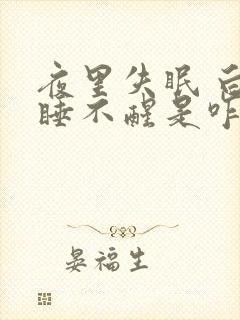 夜里失眠
睡不醒是咋
晏福生